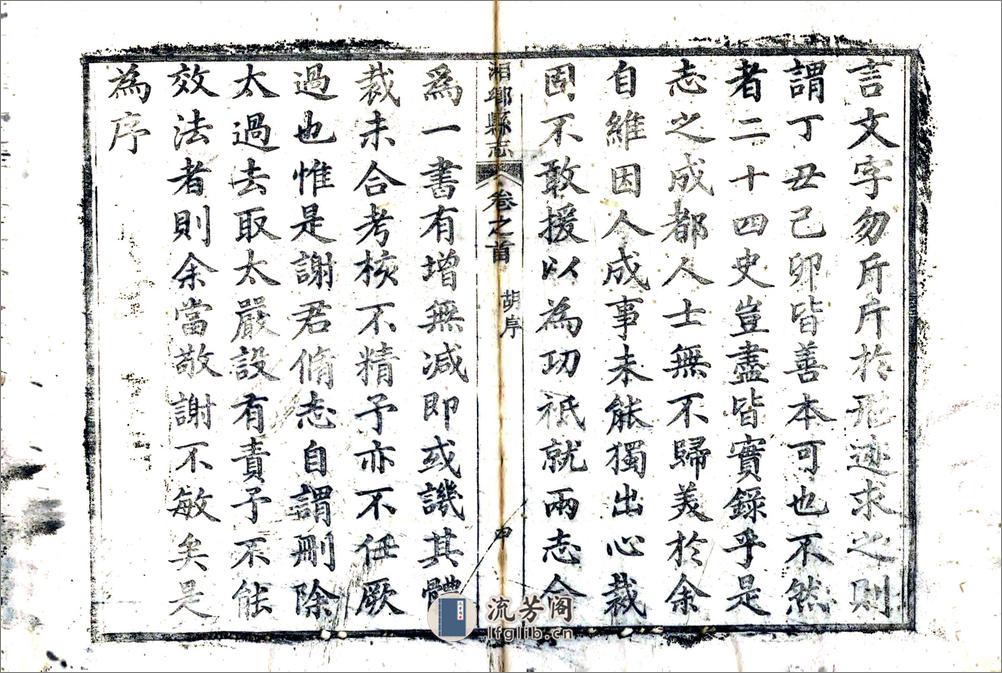 言文字勿斤斤於形迹求之則
謂丁丑己卯皆善本可也不然
者二十四史豈盡皆實錄乎是
志之成都人士無不歸美於余
自維因人成事未能獨出心裁
固不敢援以為功祇就兩志合
湘鄉縣志 卷之首 胡序
爲一書有增無減即或譏其體
裁未合考核不精予亦不任厥
過也惟是謝君脩志自謂刪除
太過去取太嚴設有責予不能
效法者則余當敬謝不敏矣是
為序
流芳阁
lfglib.cn